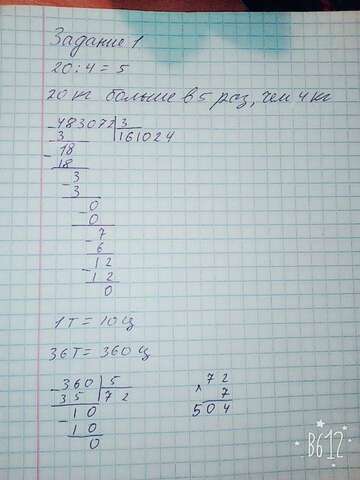 Задание 1
20:4=5
20 кг больше в 5 раз, чем 4 кг
483072 3
3 161024
18
18
3
3
0
0
7
6
12
12
0
1т = 10 ц
36т = 360 ц
360 5
35 72
10
10
0
× 72
7
504
B612